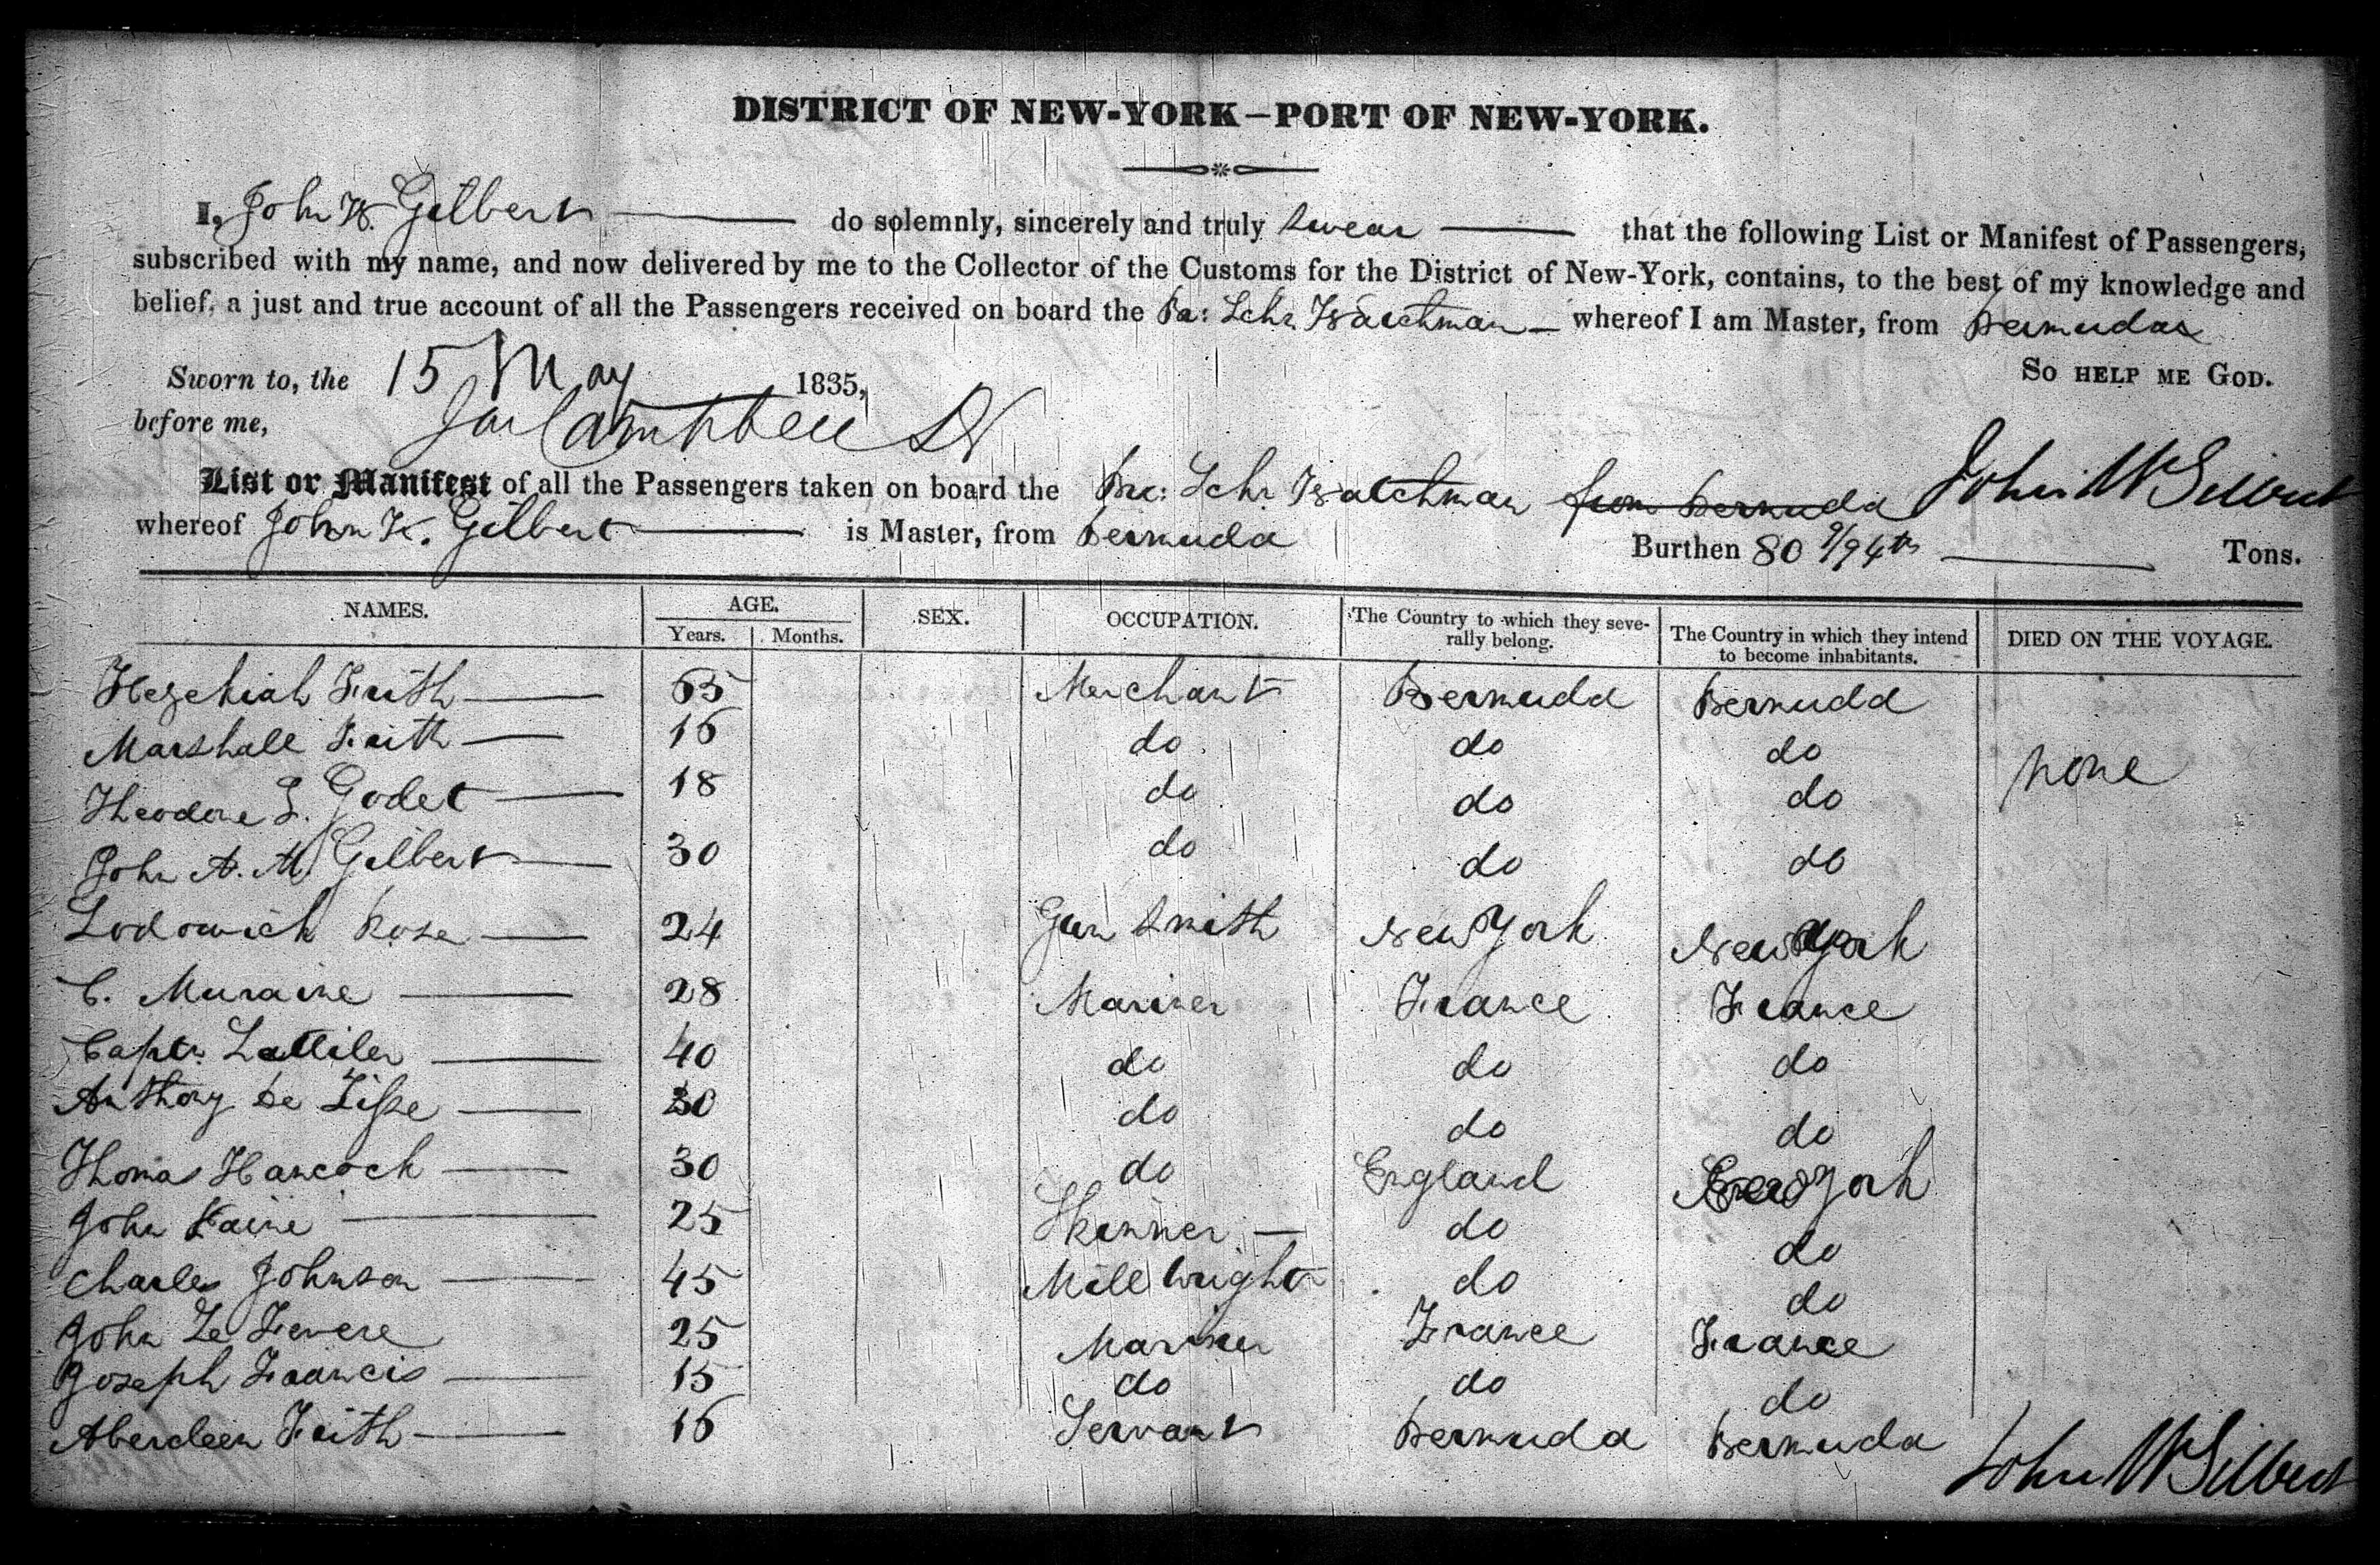 DISTRICT OF NEW-YORK—PORT OF NEW-YORK.
I, John W. Gilbert do solemnly, sincerely and truly swear that the following List or Manifest of Passengers,
subscribed with my name, and now delivered by me to the Collector of the Customs for the District of New-York, contains, to the best of my knowledge and
belief, a just and true account of all the Passengers received on board the Br: Schr Watchman whereof I am Master, from Bermudas
Sworn to, the 15 May 1835, SO HELP ME GOD.
before me, Campbell
John W Gilbert
List or Manifest of all the Passengers taken on board the Br: Schr Watchman from Bermuda
whereof John W. Gilbert is Master, from Bermuda Burthen 80 9/94ths Tons.
NAMES. AGE. Years. Months. SEX. OCCUPATION. The Country to which they severally belong. The Country in which they intend to become inhabitants. DIED ON THE VOYAGE.
Hezekiah Frith 65 Merchant Bermuda Bermuda
Marshall Frith 16 do do do none
Theodore L. Godet 18 do do do
John A. M. Gilbert 30 do do do
Lodowick Rose 24 Gun Smith New York New York
C. Muraine 28 Mariner France France
Captn. Lattiler 40 do do do
Anthony De Lisse 30 do do do
Thomas Hancock 30 do England New York
John Kaine 25 Skinner do do
Charles Johnson 45 Mill wright do do
John Le Fevere 25 Mariner France France
Joseph Francis 15 do do do
Aberdeen Frith 16 Servant Bermuda Bermuda
John W Gilbert